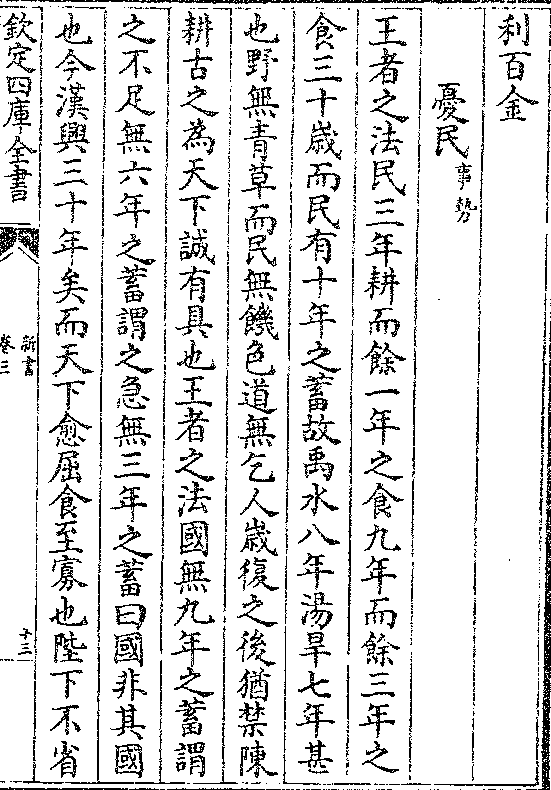 利百金
憂民事勢
王者之法民三年耕而餘一年之食九年而餘三年之
食三十歲而民有十年之蓄故禹水八年湯旱七年甚
也野無青草而民無饑色道無乞人歲復之後猶禁陳
耕古之為天下誠有具也王者之法國無九年之蓄謂
之不足無六年之蓄謂之急無三年之蓄曰國非其國
也今漢興三十年矣而天下愈屈食至寡也陛下不省
欽定四庫全書
新書
卷三
十三